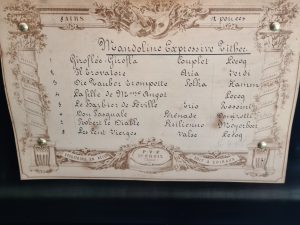 8 AIRS
Mandoline Expressive Zither
1 Giroflée-Girofla Couplet Lecoq
2 Il Trovatore Aria Verdi
3 Die Zauber Trompette Polka Hamm
4 La fille de Mme Angot Lecoq
5 Le Barbier de Séville Trio Rossini
6 Don Pasquale Sérénade Donizetti
7 Robert le Diable Sicilienne Meyerbeer
8 Les Cent Vierges Valse Lecoq